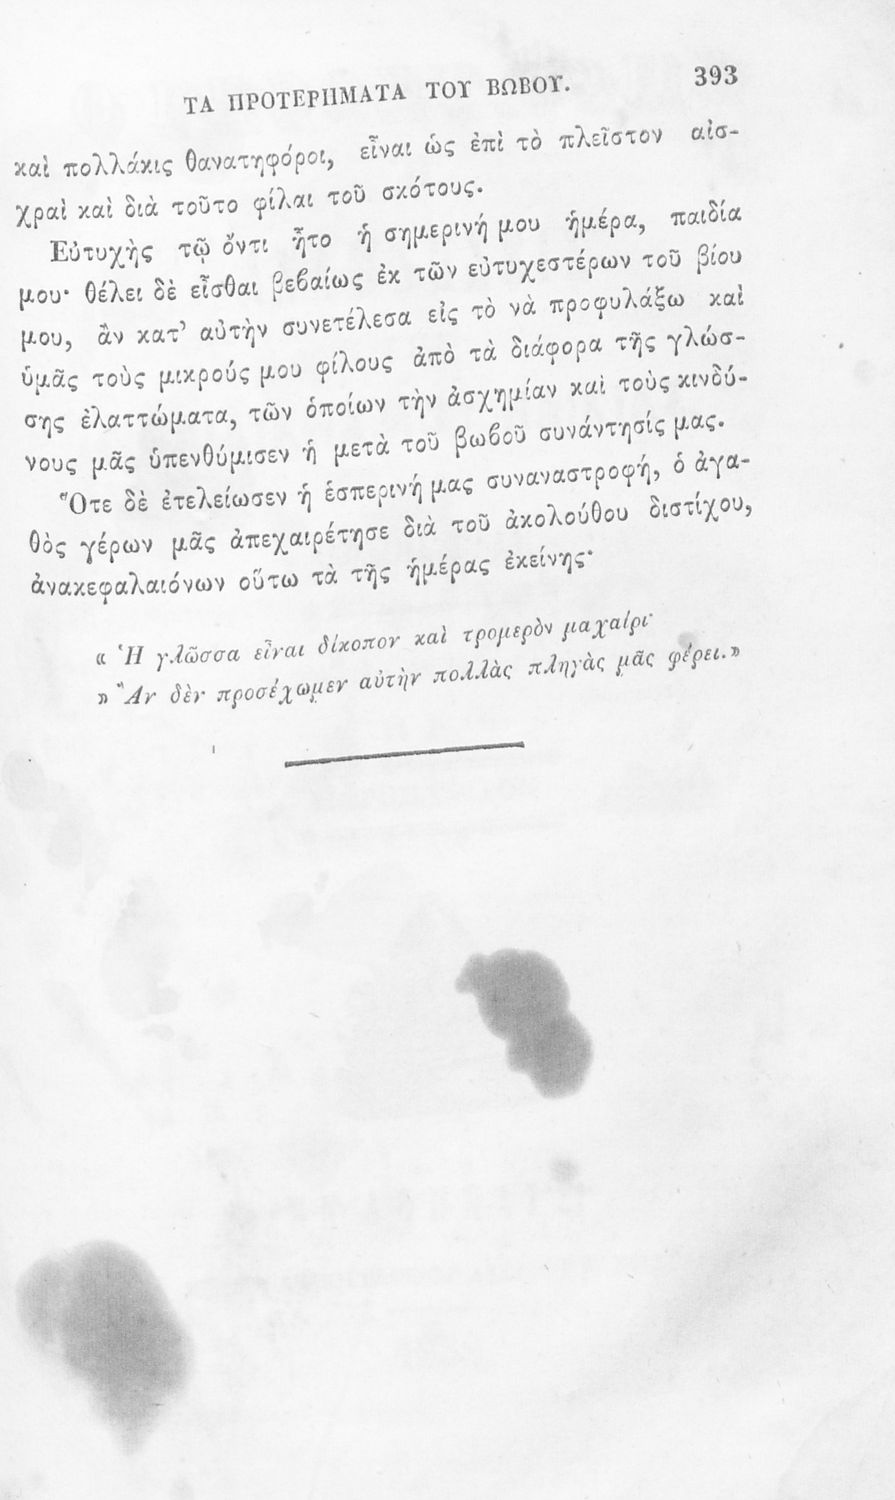 ΤΑ ΠΡΟΤΕΡΗΜΑΤΑ ΤΟΥ ΒΩΒΟΥ. 393
καὶ πολλάκις θανατηφόροι, εἶναι ὡς ἐπὶ τὸ πλεῖστον αἰσ-
χραὶ καὶ διὰ τοῦτο φίλαι τοῦ σκότους.
Εὐτυχὴς τῷ ὄντι ἦτο ἡ σημερινή μου ἡμέρα, παιδία
μου· θέλει δὲ εἶσθαι βεβαίως ἐκ τῶν εὐτυχεστέρων τοῦ βίου
μου, ἂν κατ’ αὐτὴν συνετέλεσα εἰς τὸ νὰ προφυλάξω καὶ
ὑμᾶς τοὺς μικρούς μου φίλους ἀπὸ τὰ διάφορα τῆς γλώσ-
σης ἐλαττώματα, τῶν ὁποίων τὴν ἀσχημίαν καὶ τοὺς κινδύ-
νους μᾶς ὑπενθύμισεν ἡ μετὰ τοῦ βωβοῦ συνάντησίς μας.
Ὅτε δὲ ἐτελείωσεν ἡ ἑσπερινή μας συναναστροφή, ὁ ἀγα-
θὸς γέρων μᾶς ἀπεχαιρέτησε διὰ τοῦ ἀκολούθου διστίχου,
ἀνακεφαλαιόνων οὕτω τὰ τῆς ἡμέρας ἐκείνης·
« Ἡ γλῶσσα εἶναι δίκοπον καὶ τρομερὸν μαχαίρι·
» Ἂν δὲν προσέχωμεν αὐτὴν πολλὰς πληγὰς μᾶς φέρει.»